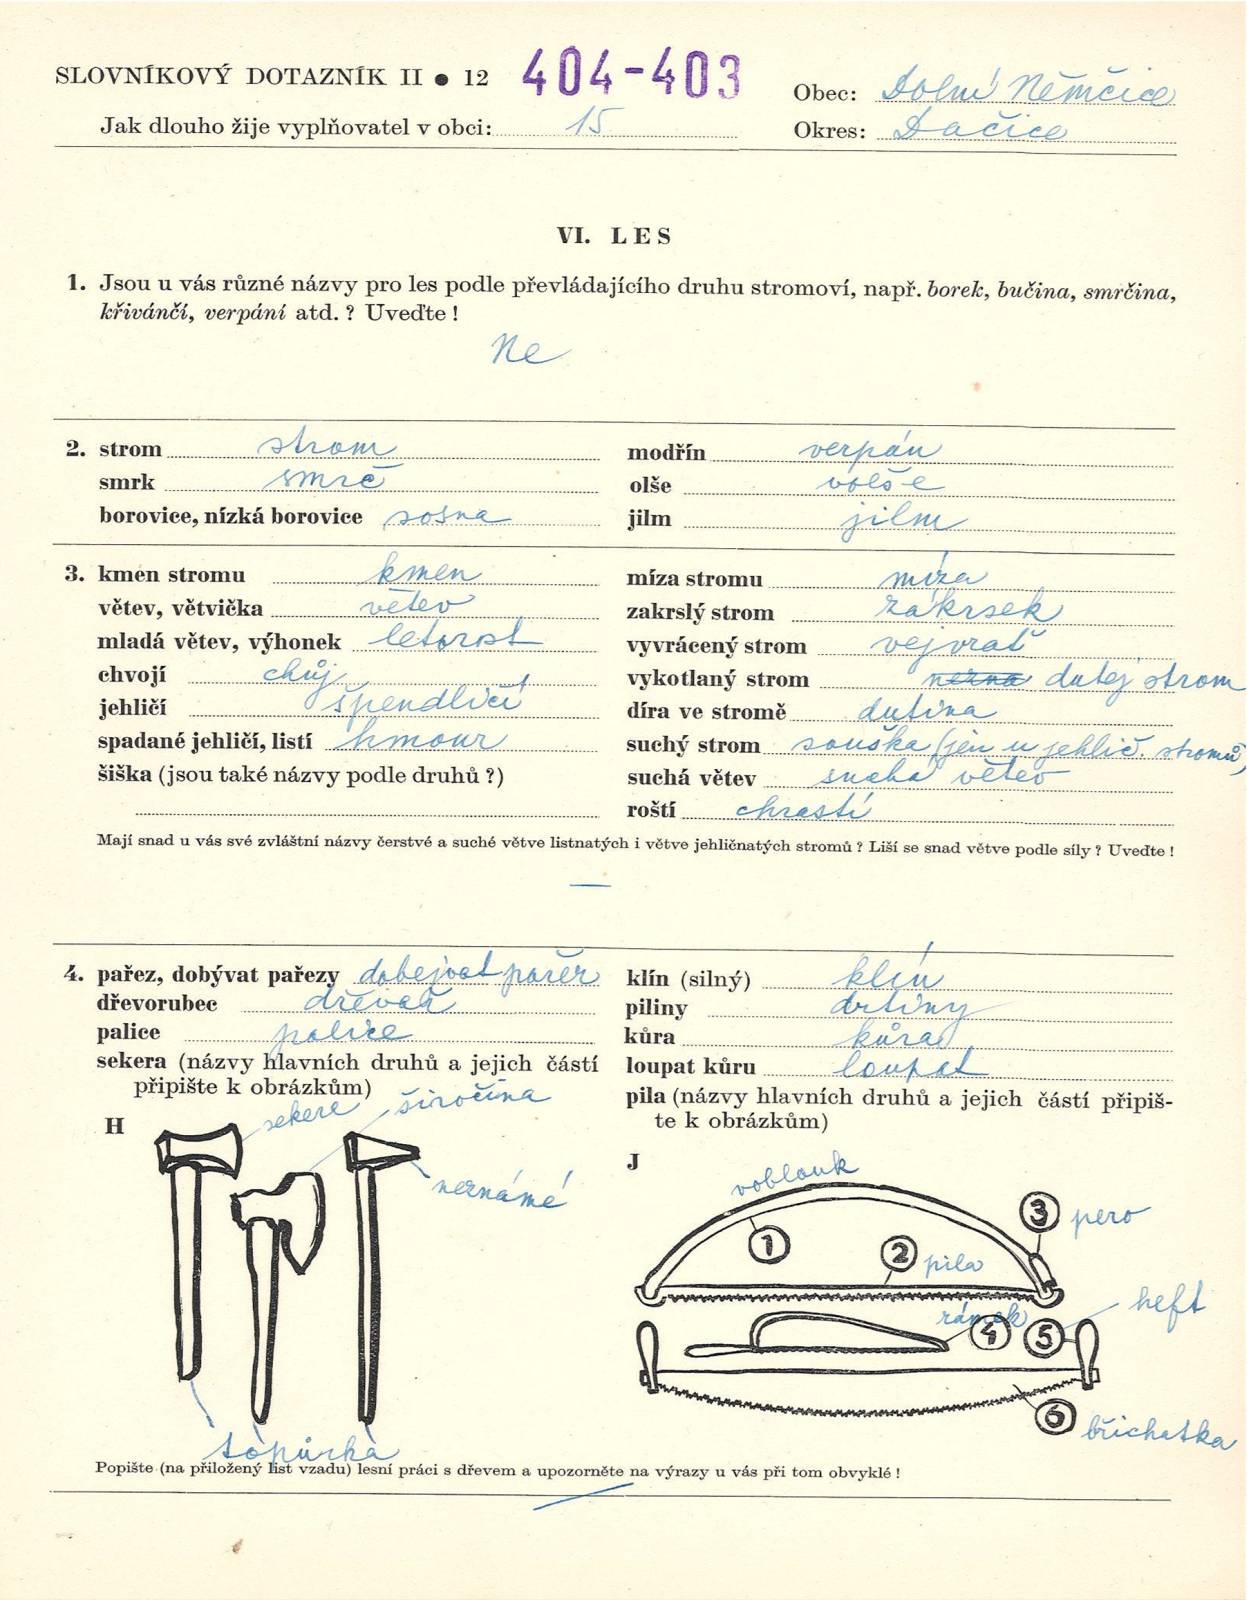 SLOVNÍKOVÝ DOTAZNÍK II ● 12
404-403
Obec: Dolní Němčice
Jak dlouho žije vyplňovatel v obci: 15
Okres: Dačice
VI. LES
1. Jsou u vás různé názvy pro les podle převládajícího druhu stromoví, např. borek, bučina, smrčina,
křivánčí, verpání atd. ? Uveďte !
Ne
2. strom strom
smrk smrč
borovice, nízká borovice sosna
modřín verpán
olše volše
jilm jilm
3. kmen stromu kmen
větev, větvička větev
mladá větev, výhonek letorost
chvojí chůj
jehličí špendličí
spadané jehličí, listí hmour
šiška (jsou také názvy podle druhů ?)
míza stromu míza
zakrslý strom zákrsek
vyvrácený strom vejvrať
vykotlaný strom nezna dutej strom
díra ve stromě dutina
suchý strom souška (jen u jehlič. stromů)
suchá větev suchá větev
roští chrastí
Mají snad u vás své zvláštní názvy čerstvé a suché větve listnatých i větve jehličnatých stromů ? Liší se snad větve podle síly ? Uveďte !
—
4. pařez, dobývat pařezy dobejvat pařez
dřevorubec dřevař
palice palice
sekera (názvy hlavních druhů a jejich částí
připište k obrázkům)
H
sekere
širočina
neznámé
topůrka
klín (silný) klín
piliny drtiny
kůra kůra
loupat kůru loupat
pila (názvy hlavních druhů a jejich částí připiš-
te k obrázkům)
J
voblouk
1
2 pila
3 pero
rámek
4
5 heft
6 břichatka
Popište (na přiložený list vzadu) lesní práci s dřevem a upozorněte na výrazy u vás při tom obvyklé !